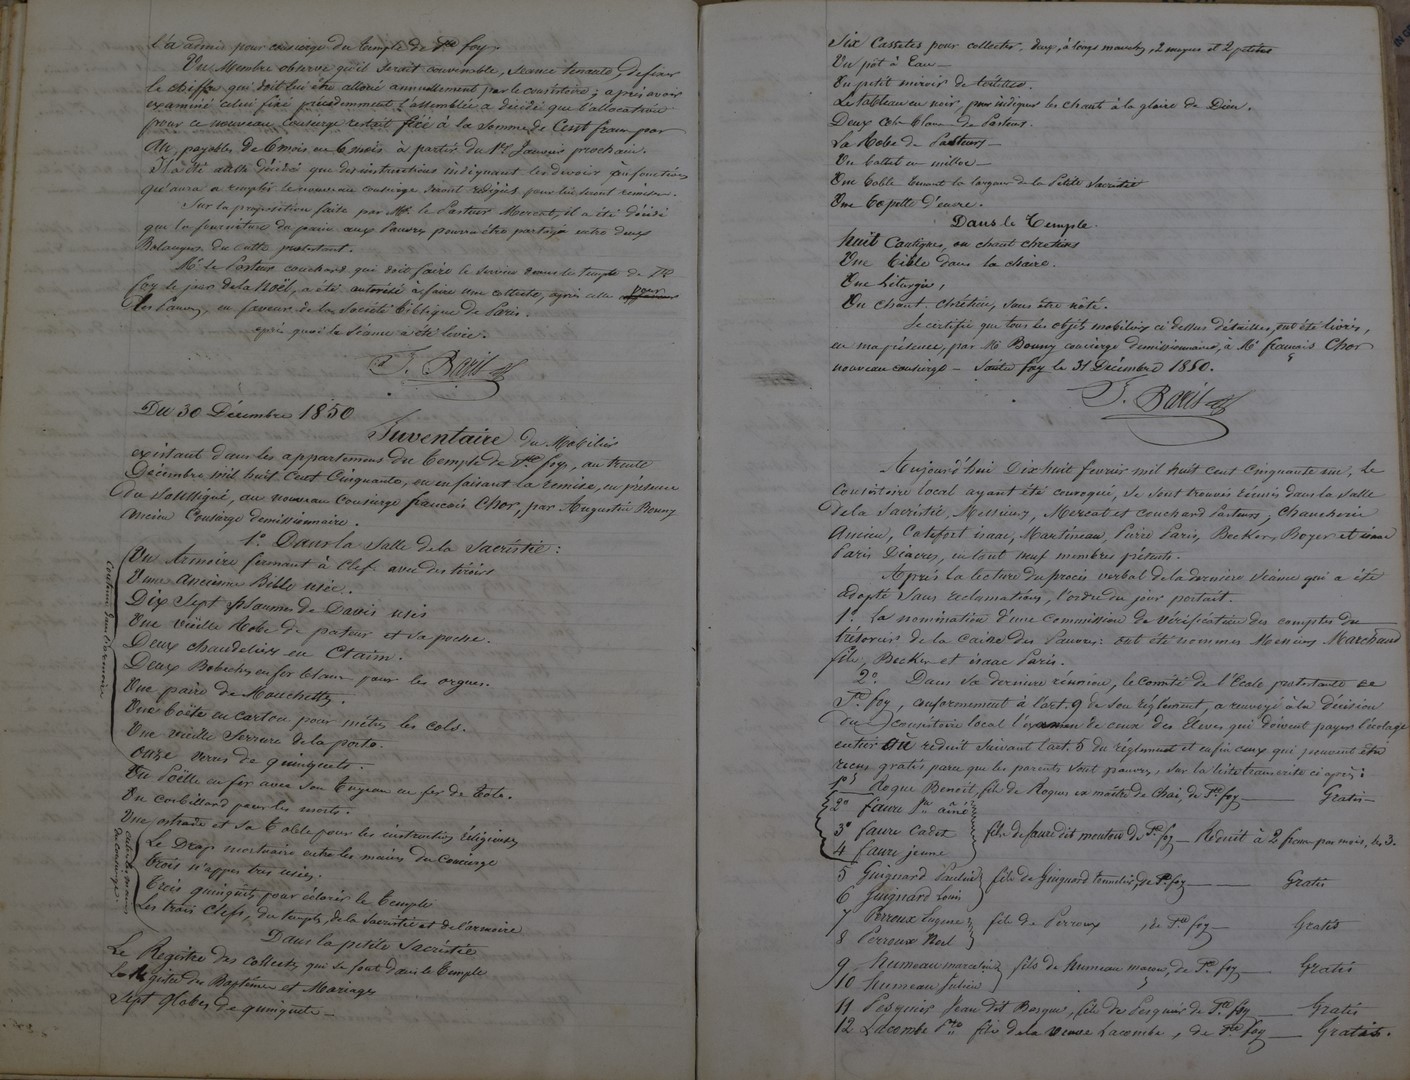 l'a admis pour concierge du temple de Ste foy.
Un Membre observe qu'il serait convenable, séance tenante, de fixer
le chiffre qui doit lui être alloué annuellement par le consistoire ; après avoir
examiné celui fixé précédemment l'assemblée a décidé que l'allocation
pour ce nouveau concierge restait fixée à la somme de Cent francs par
An, payables de 6 mois en 6 mois à partir du 1er Janvier prochain.
Il a été aussi décidé que des instructions indiquant les devoirs & fonctions
qu'aura à remplir le nouveau concierge seront rédigées pour lui être remises.
Sur la proposition faite par Mr. le Pasteur Mercat, il a été décidé
que la fourniture du pain aux Pauvres pourra être partagée entre deux
Boulangers du culte protestant.
Mr le Pasteur couchard qui doit faire le service dans le temple de Ste
foy le jour de la Noël, a été autorisé à faire une collecte, après celle pour
les Pauvres, en faveur de la Société biblique de Paris.
après quoi la séance a été levée.
Du 30 Décembre 1850
Inventaire du Mobilier
existant dans les appartemens du temple de Ste foy, au trente
Décembre mil huit cent Cinquante, en en faisant la remise, en présence
du soussigné, au nouveau Concierge francois Chor, par Augustin Bonny
ancien Concierge demissionnaire.
1º Dans la Salle de la Sacristie :
contenu dans l'armoire
Un Armoire fermant à Clef avec des tiroirs
Une ancienne Bible usée.
Dix Sept psaumes de David usés
Une vieille Robe de pasteur et sa poche.
Deux chandeliers en Etaim.
Deux Bobeches en fer blanc pour les orgues.
Une paire de Mouchettes.
Une boëte en carton pour mettre les cols.
Une vieille Serrure de la porte.
onze verres de quinquets.
Un Poële en fer avec son tuyeau en fer de tole.
Un corbillard pour les morts.
Une estrade et sa table pour les instructions réligieuses
Le Drap mortuaire entre les mains du Concierge
trois nappes tres usées.
trois quinquets pour éclairer le temple
Les trois Clefs, du temple, de la Sacristie et de l'armoire
Dans la petite Sacristie
Le Registre des collectes qui se font dans le temple
Le Registre des Baptêmes et Mariages
Sept globes de quinquets
Six Cassetes pour collectes. deux à longs manches, 2 moyens et 2 petites
Un pôt à Eau
Un petit miroir de toilette.
Le tableau en noir, pour indiquer les chant à la gloire de Dieu.
Deux cols blancs de Pasteurs.
La Robe de Pasteurs
Une table tenant la largeur de la petite Sacristie
Dans le Temple.
huit Cantiques, ou chant chretiens
Une Bible dans la chaire.
Une Liturgie,
Un chant chrétien, sans être noté.
Je certifie que tous les objets mobiliers ci dessus détaillés, ont été livrés,
en ma présence, par Mr Bonny concierge demissionnaire, à Mr francois Chor
nouveau concierge – Sainte foy le 31 Décembre 1850.
Aujourd'hui Dix huit fevrier mil huit cent Cinquante un, Le
Consistoire local ayant été convoqué, se sont trouvés réunis dans la salle
de la Sacristie, Messieurs, Mercat et couchard Pasteurs ;
Ancien, Calefort isaac, Martineau, Pierre Paris, Becker, Boyer et isaac
Paris Diacres, en tout neuf membres présents.
Après la lecture du procès verbal de la derniere séance qui a été
adopté sans reclamations, l'ordre du jour portait.
1º. La nomination d'une Commission de Vérification des comptes du
trésorier de la Caisse des Pauvres : ont été nommés Messieurs Marchand
fils, Becker et isaac Paris.
2º. Dans sa derniere réunion, le comité de l'Ecole protestante de
Ste foy, conformement à l'art. 9 de son réglement, a renvoyé à la décision
du Consistoire local l'examen de ceux des Eleves qui doivent payer l'écolage
entier ou réduit suivant l'art. 5 du réglement et enfin ceux qui peuvent être
recus gratis parce que les parents sont pauvres, sur la liste transcrite ci après :
1º Roque Benoit, fils de Roques ex maître de Chai, de Ste foy — Gratis
2º faure Jn ainé
3º faure Cadet fils de faure dit mouton de Ste foy — Reduit à 2 francs par mois, les 3.
4 faure jeune
5 Guignard Paulin fils de Guignard tonnelier, de Ste foy — Gratis
6 Guignard Louis
7 Perreux Eugene fils de Perreux, de Ste foy — Gratis
8 Perreux Noel
9 humeau marcelin fils de humeau macon, de Ste foy — Gratis
10 humeau Julien
11 Pesquier Jean dit Bosque, fils de Pesquier de Ste foy — Gratis
12 Lacombe fils de la veuve Lacombe, de Ste foy — Gratis.